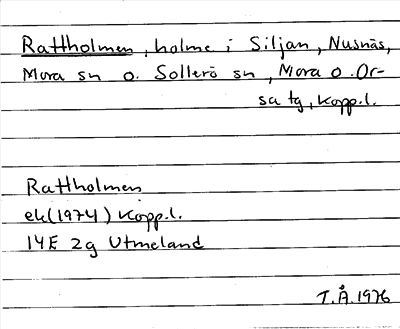 Rattholmen, holme i Siljan, Nusnäs,
Mora sn o. Sollerö sn, Mora o. Or-
sa tg, Kopp.l.
Rattholmen
ek(1974) Kopp.l.
14E 2g Utmeland
T.Å.1976